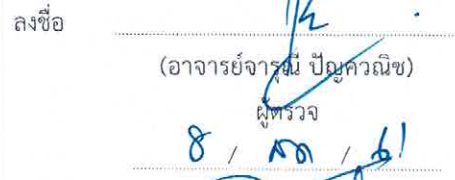 ลงชื่อ
(อาจารย์จารุณี ปัญควณิช)
ผู้ตรวจ
8 / ตค / 61